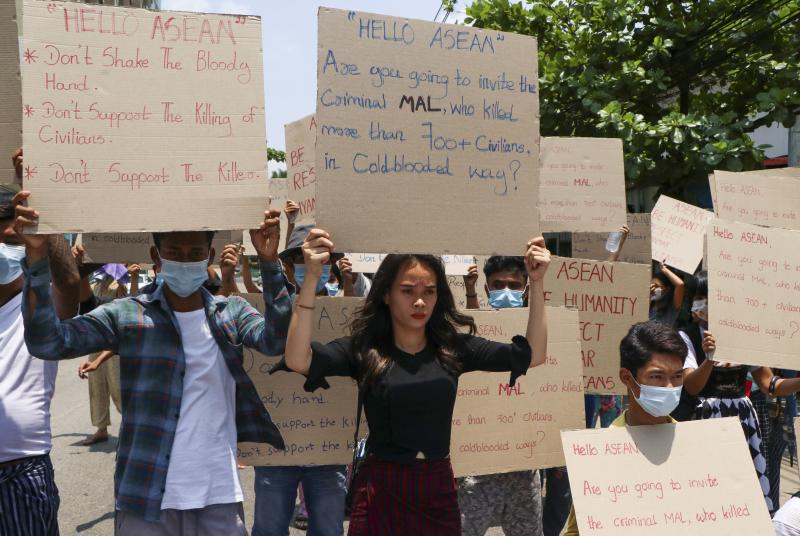 "HELLO ASEAN"
* Don't Shake The Bloody
Hand.
* Don't Support The Killing of
Civilians.
* Don't Support The Killer.
"HELLO ASEAN"
Are you going to invite the
Criminal MAL, who killed
more than 700+ Civilians.
in Coldblooded way?
BE
RES
ou going to invite
minal MAL, who
more than 700+ civilians
coldblooded way?
ASEAN
HUMANITY
Hello ASEAN.
you going to invite
Hello ASEAN.
Are you going to in
the criminal MAL
than 700+ civilians
coldblooded ways?
Don't
ASEAN
E HUMANITY
ECT
AR
CANS
ody hand.
support the k
n't support the ki
ASEAN.
going to invite
criminal MAL, who killed
re than 700+ civilians.
coldblooded ways?
Hello ASEAN.
Are you going to invite
the criminal MAL, who killed